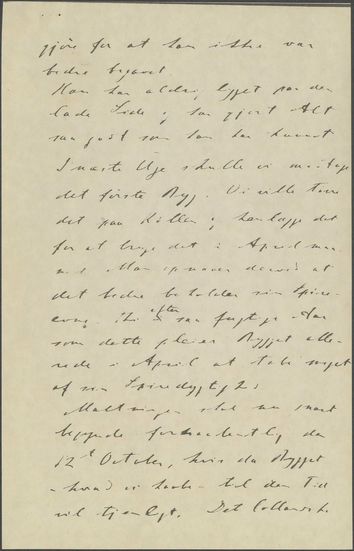 gjöre for at han ikke var
bedre begavet.
Han har aldrig ligget paa den
lade Side, han gjort Alt
saa godt som han har kunnet
I næste Uge skulle vi modtage
det første Byg. Vi ville törre
det paa Köllen og henlægge det
for at bruge det i April maa-
ned. Man opnaaer derved at
det bedre beholder sin Spire-
evne. Thi efter saa fugtige Aar
som dette pleier Bygget alle-
rede i April at tabe noget
af sin Spiredygtighed.
Maltningen skal nu snart
begynde formodentlig den
12te October, hvis da Bygget
- hvad vi haabe - til den Tid
vil tjenligt. Det Collandske